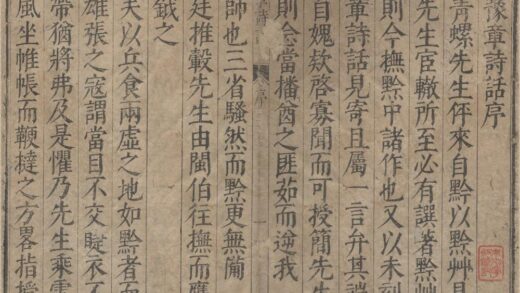 豫章詩話序
青螺先生伻來自黔以黔艸見
先生宦轍所至必有譔著黔艸
則今撫黔中諸作也又以未刻
章詩話見寄且屬一言弁其端
自媿欵啓寡聞而可授簡先生
則會當播酋之匪茹而逆我
序
師也三省騷然而黔更無僃
廷推轂先生由閩伯往撫而應
鉞之
夫以兵食兩虛之地如黔者而
雄張之寇謂當目不交睫衣不
帶猶將弗及是懼乃先生乘
風坐帷帳而鞭撻之方畧指授